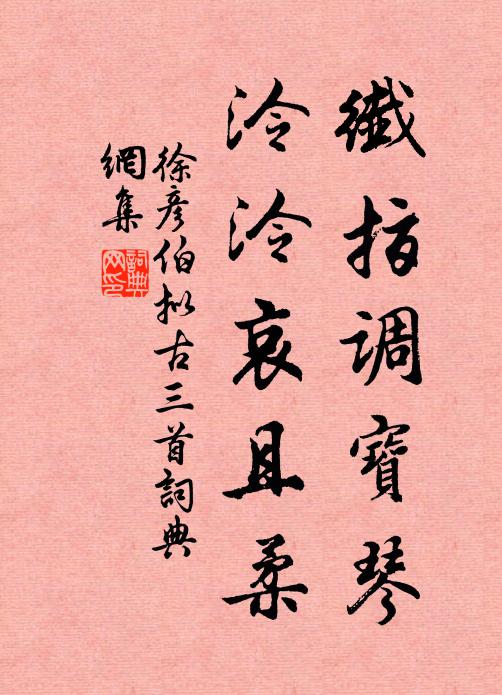 纖指調寶琴
泠泠哀且柔
徐彥伯擬古三首詞典
網集
詞典
网印